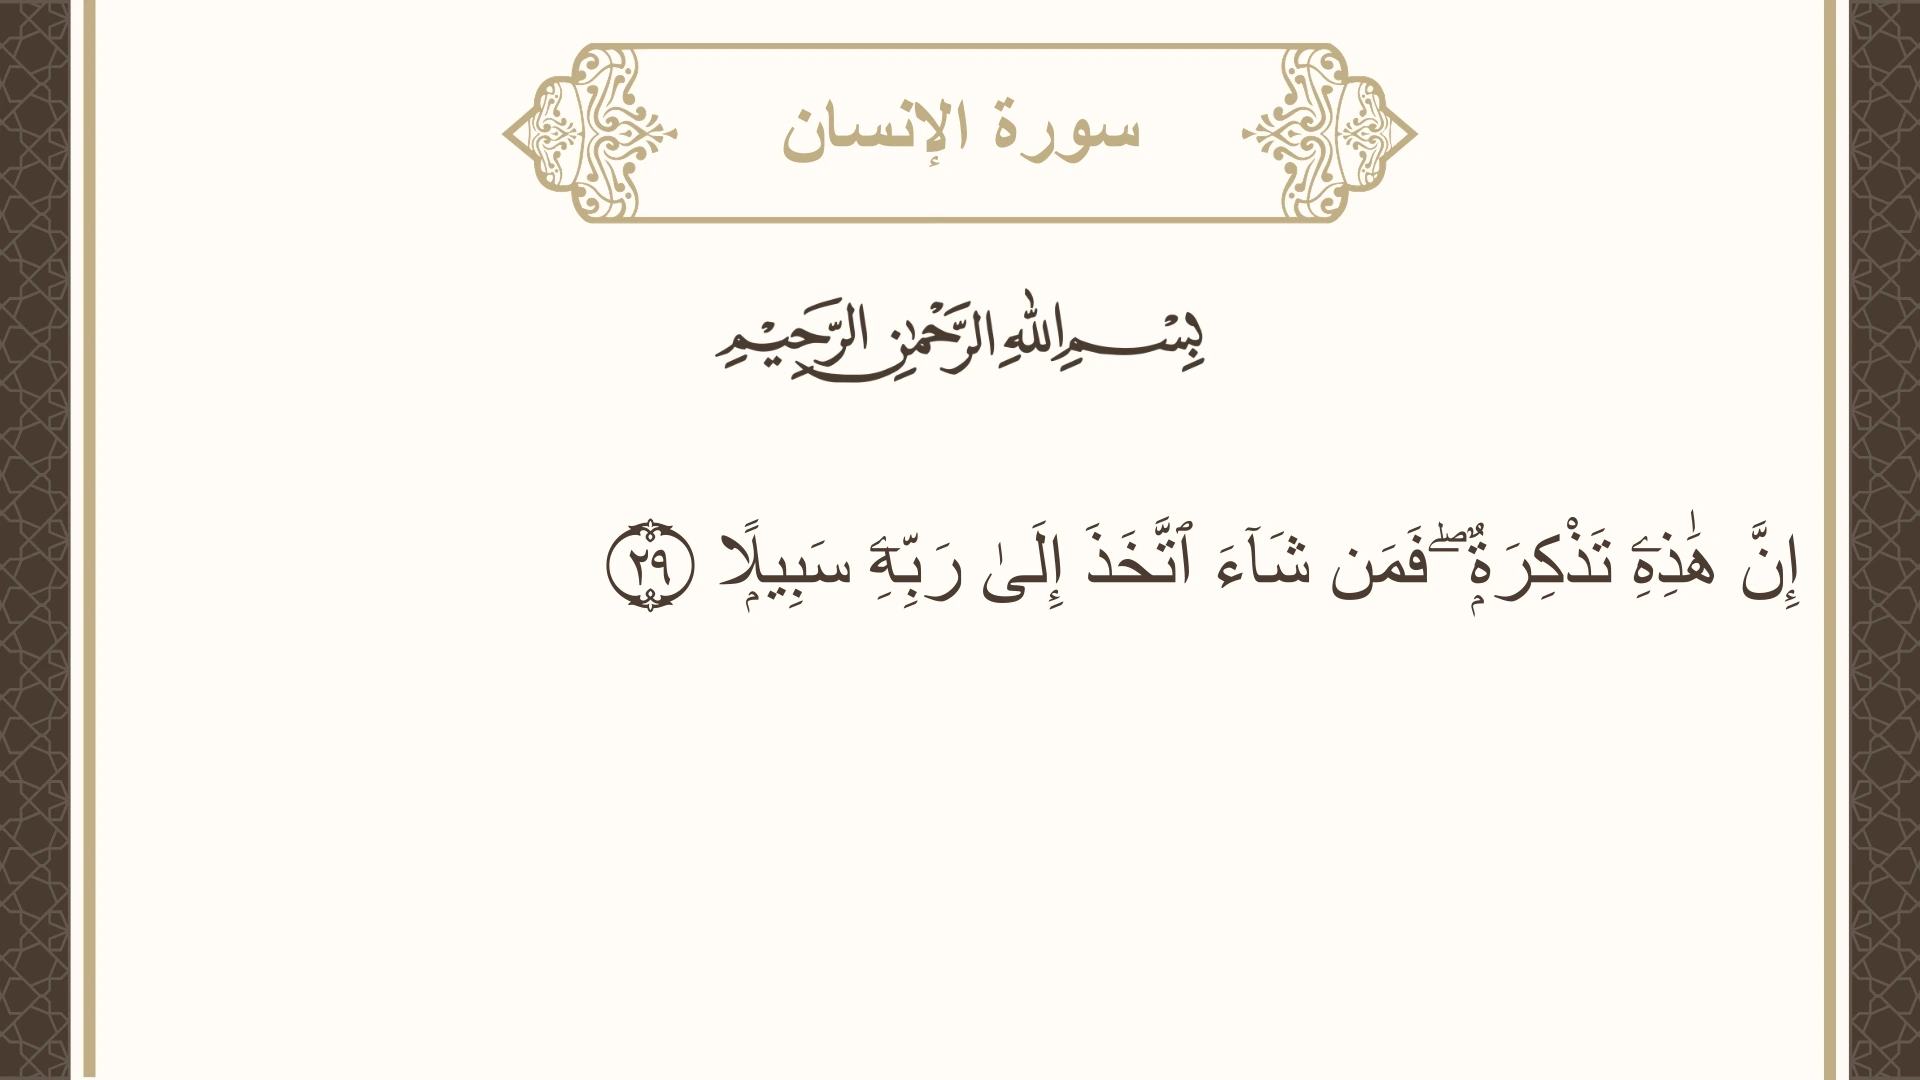 سورة الإنسان
بِسْمِ اللهِ الرَّحْمٰنِ الرَّحِيْمِ
إِنَّ هَٰذِهِۦ تَذْكِرَةٌۭ ۖ فَمَن شَآءَ ٱتَّخَذَ إِلَىٰ رَبِّهِۦ سَبِيلًۭا ٢٩